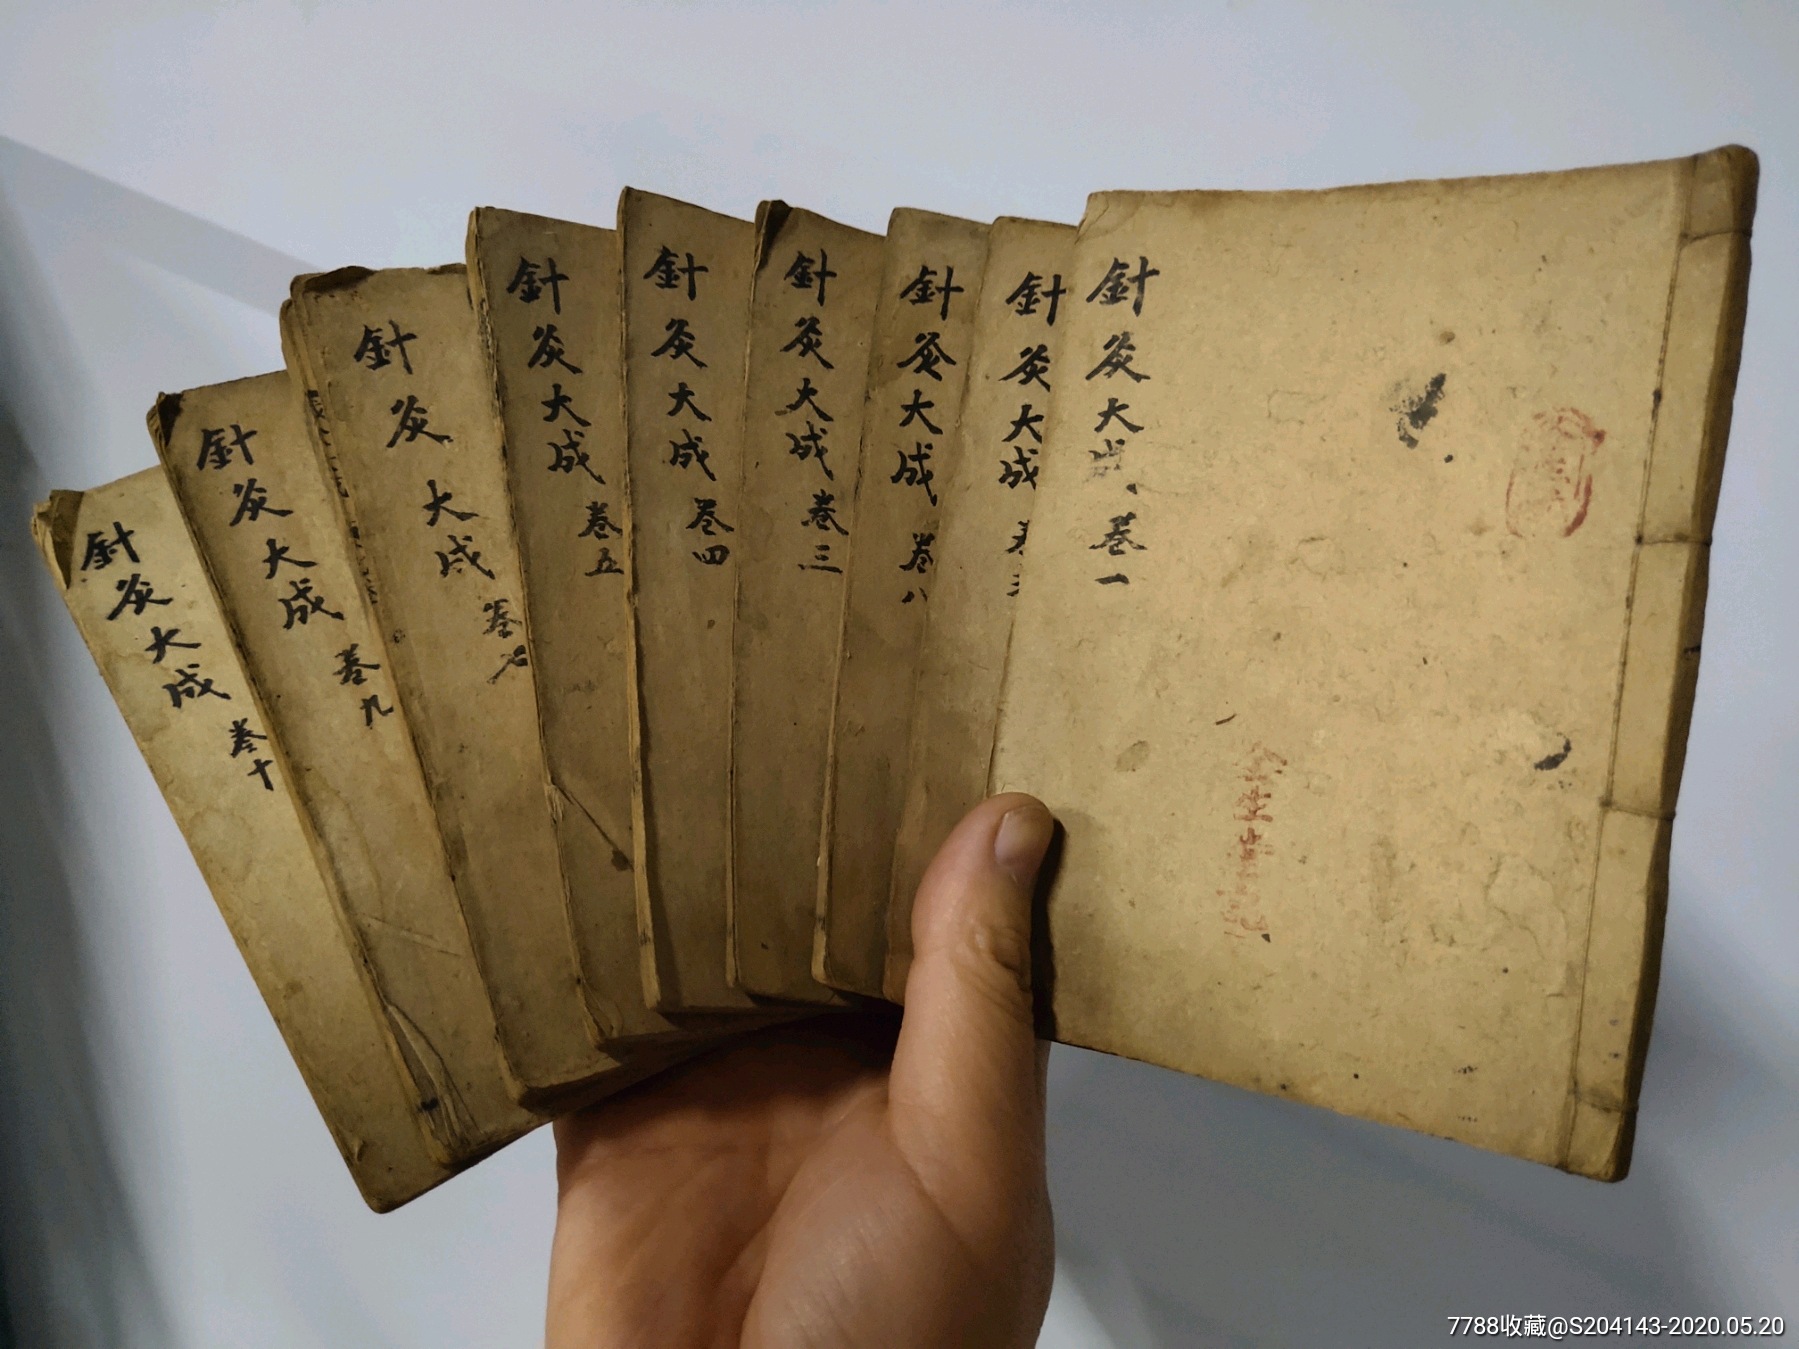 針灸大成 卷一
針灸大成
針灸大成 卷八
針灸大成 卷三
針灸大成 卷四
針灸大成 卷五
針灸大成 卷七
針灸大成 卷九
針灸大成 卷十
7788收藏@S204143-2020.05.20